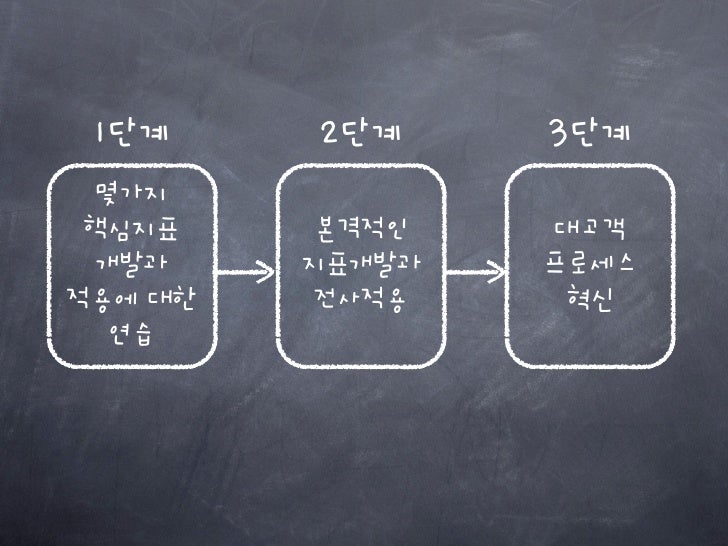 1단계
몇가지
핵심지표
개발과
적용에 대한
연습
2단계
본격적인
지표개발과
전사적용
3단계
대고객
프로세스
혁신